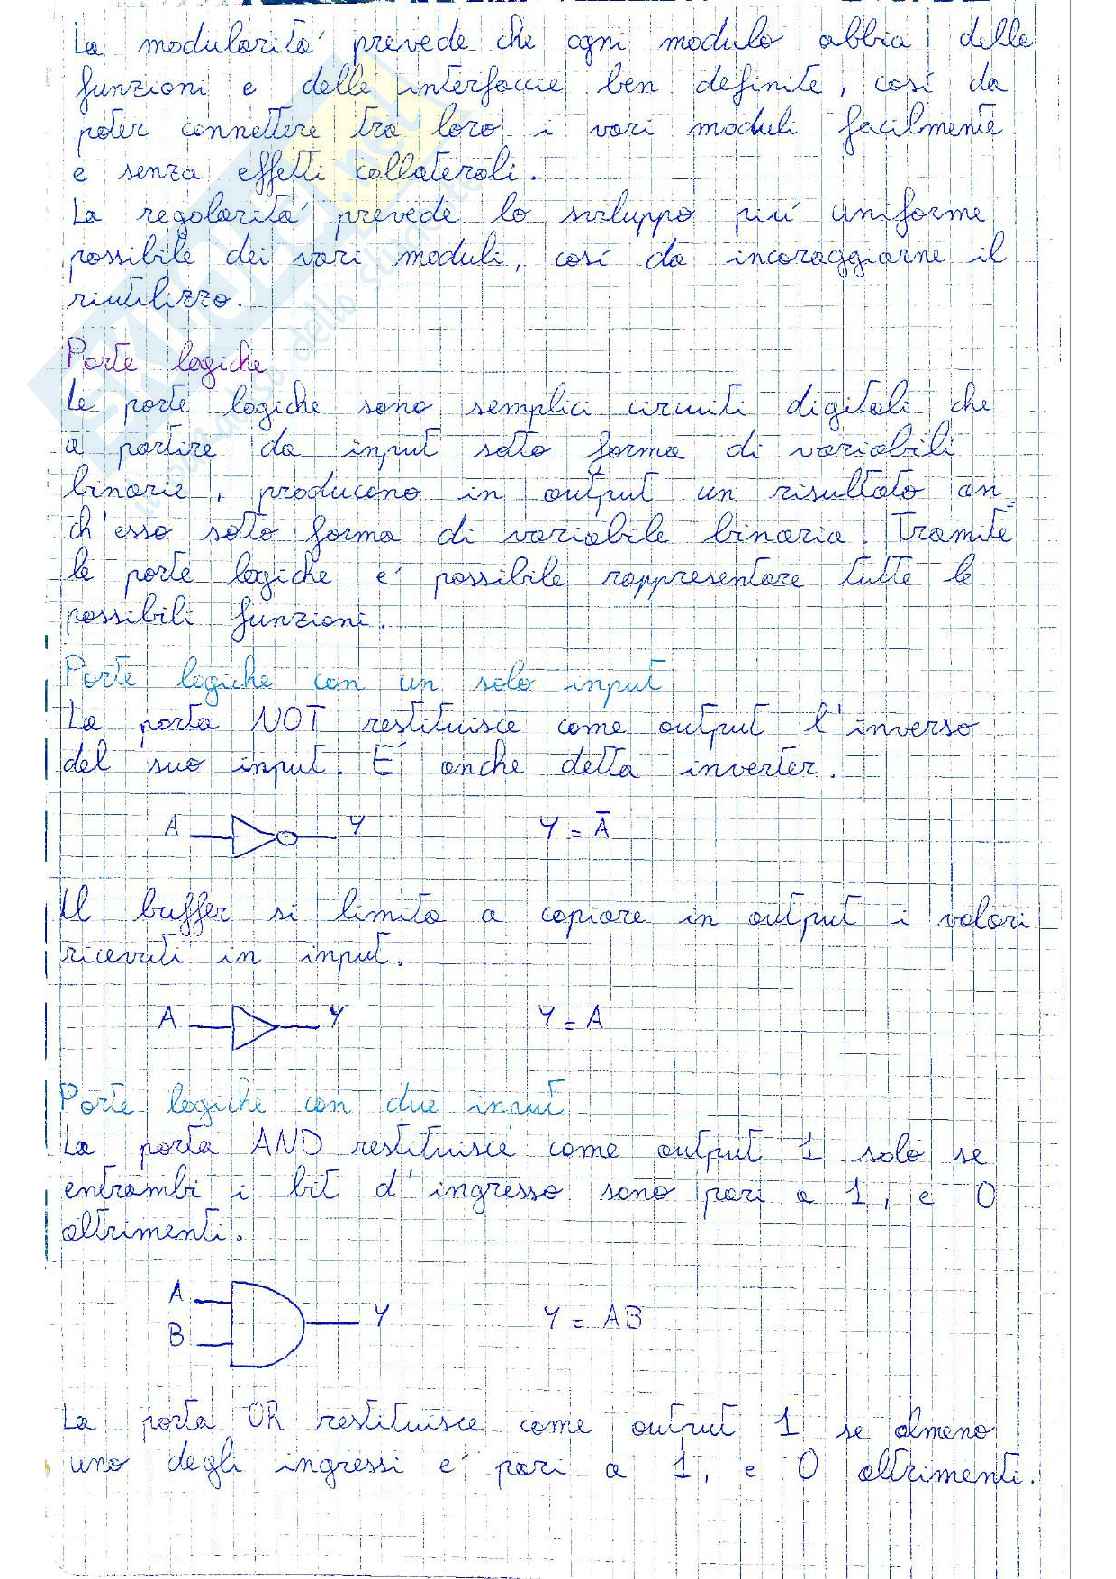 La modularità prevede che ogni modulo abbia delle
funzioni e delle interfaccie ben definite, così da
poter connettere tra loro i vari moduli facilmente
e senza effetti collaterali.
La regolarità prevede lo sviluppo più uniforme
possibile dei vari moduli, così da incoraggiarne il
riutilizzo.
Porte logiche
Le porte logiche sono semplici circuiti digitali che
a partire da input sotto forma di variabili
binarie, producono in output un risultato an
ch'esso sotto forma di variabile binaria. Tramite
le porte logiche è possibile rappresentare tutte le
possibili funzioni.
Porte logiche con un solo input
La porta NOT restituisce come output l'inverso
del suo input. È anche detta inverter.
A Y Y = Ā
Il buffer si limita a copiare in output i valori
ricevuti in input.
A Y Y = A
Porte logiche con due input
La porta AND restituisce come output 1 solo se
entrambi i bit d'ingresso sono pari a 1, e 0
altrimenti.
A
B Y Y = AB
La porta OR restituisce come output 1 se almeno
uno degli ingressi è pari a 1, e 0 altrimenti.